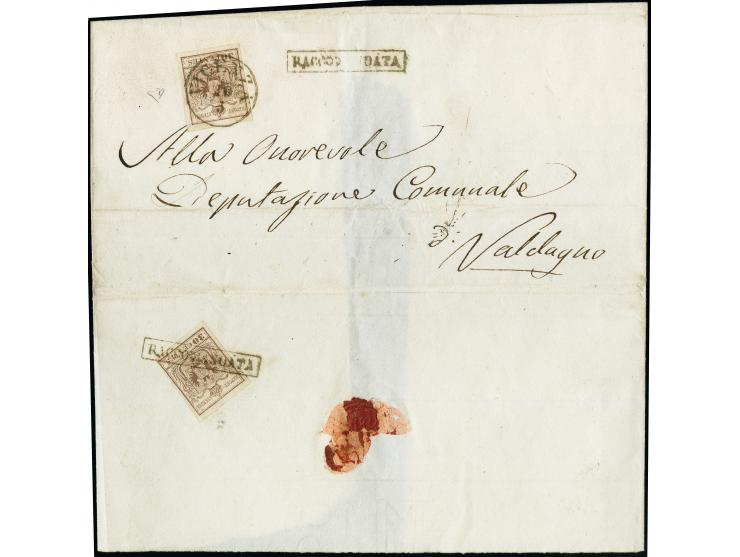 RACCOMANDATA
Alla Onorevole
Deputazione Comunale
Valdagno
RACCOMANDATA